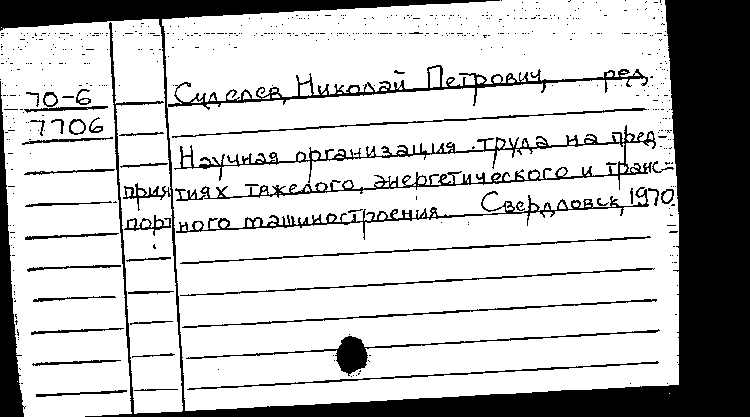 70-6
7706
Суделев, Николай Петрович, ред.
Научная организация труда на пред-
приятиях тяжелого, энергетического и транс-
портного машиностроения. Свердловск, 1970